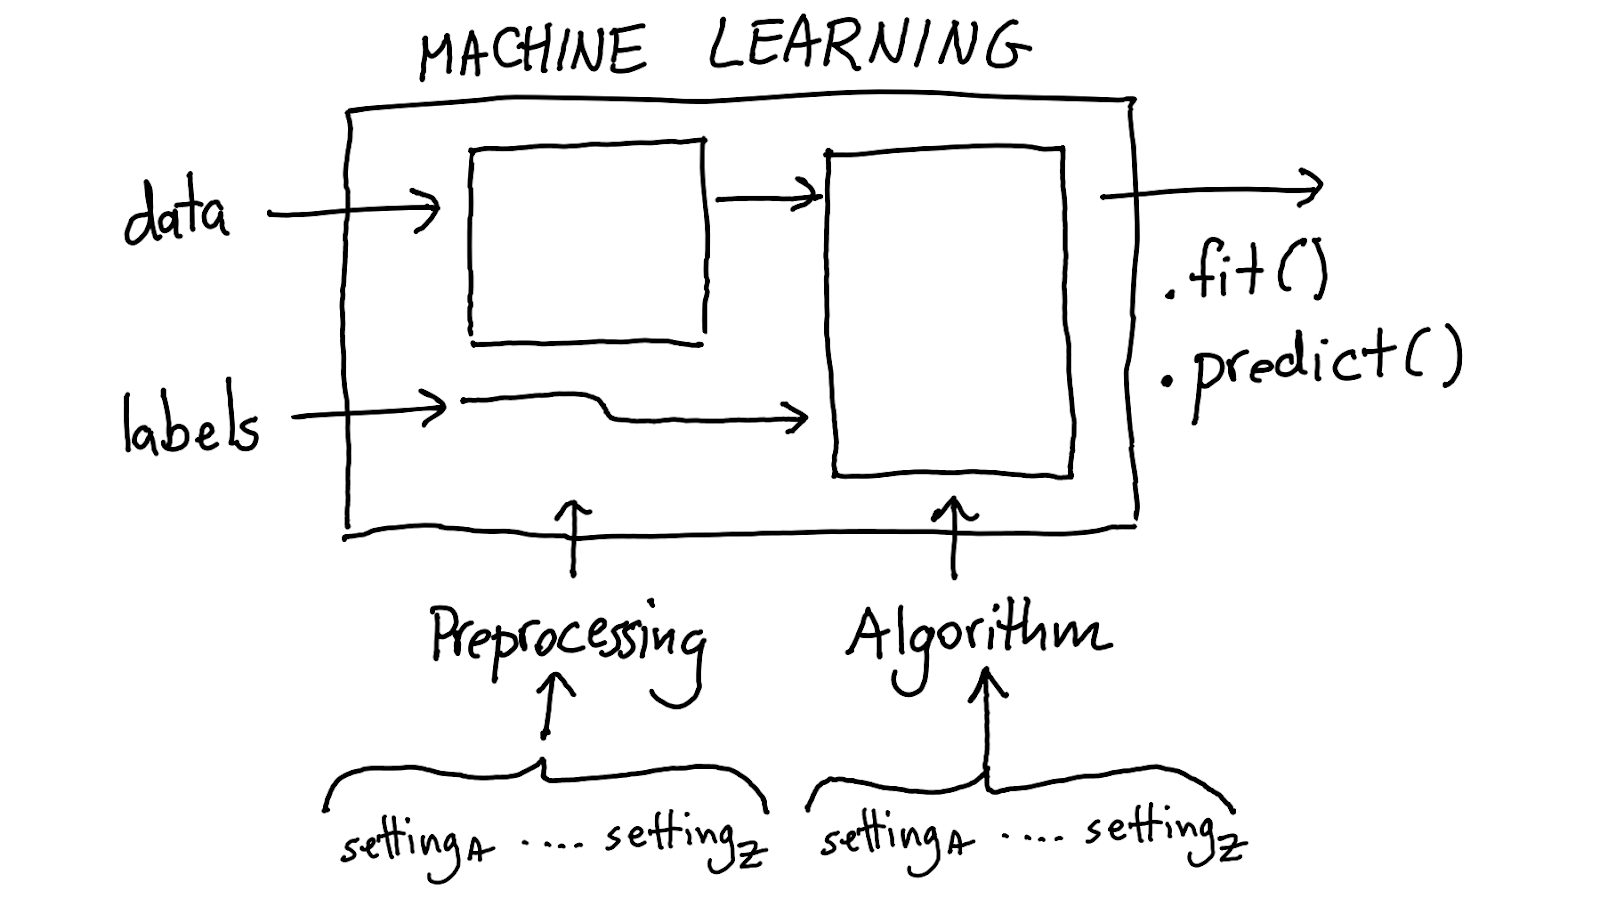 MACHINE LEARNING
data
.fit()
.predict()
labels
Preprocessing Algorithm
settingA ..... settingZ settingA ..... settingZ